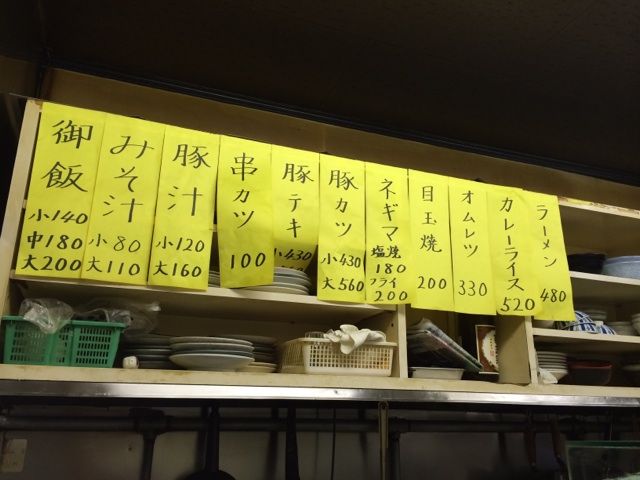 御飯
小140
中180
大200
みそ汁
小80
大110
豚汁
小120
大160
串カツ
100
豚テキ
小430
豚カツ
小430
大560
ネギマ
塩焼
180
フライ
200
目玉焼
200
オムレツ
330
カレーライス
520
ラーメン
480